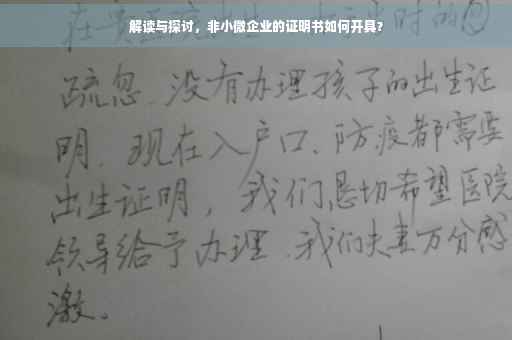 解读与探讨，非小微企业的证明书如何开具？
在贵医院出生，由于当时的
疏忽、没有办理孩子的出生证
明、现在入户口、防疫都需要
出生证明，我们恳切希望医院
领导给予办理、我们夫妻万分感
激。